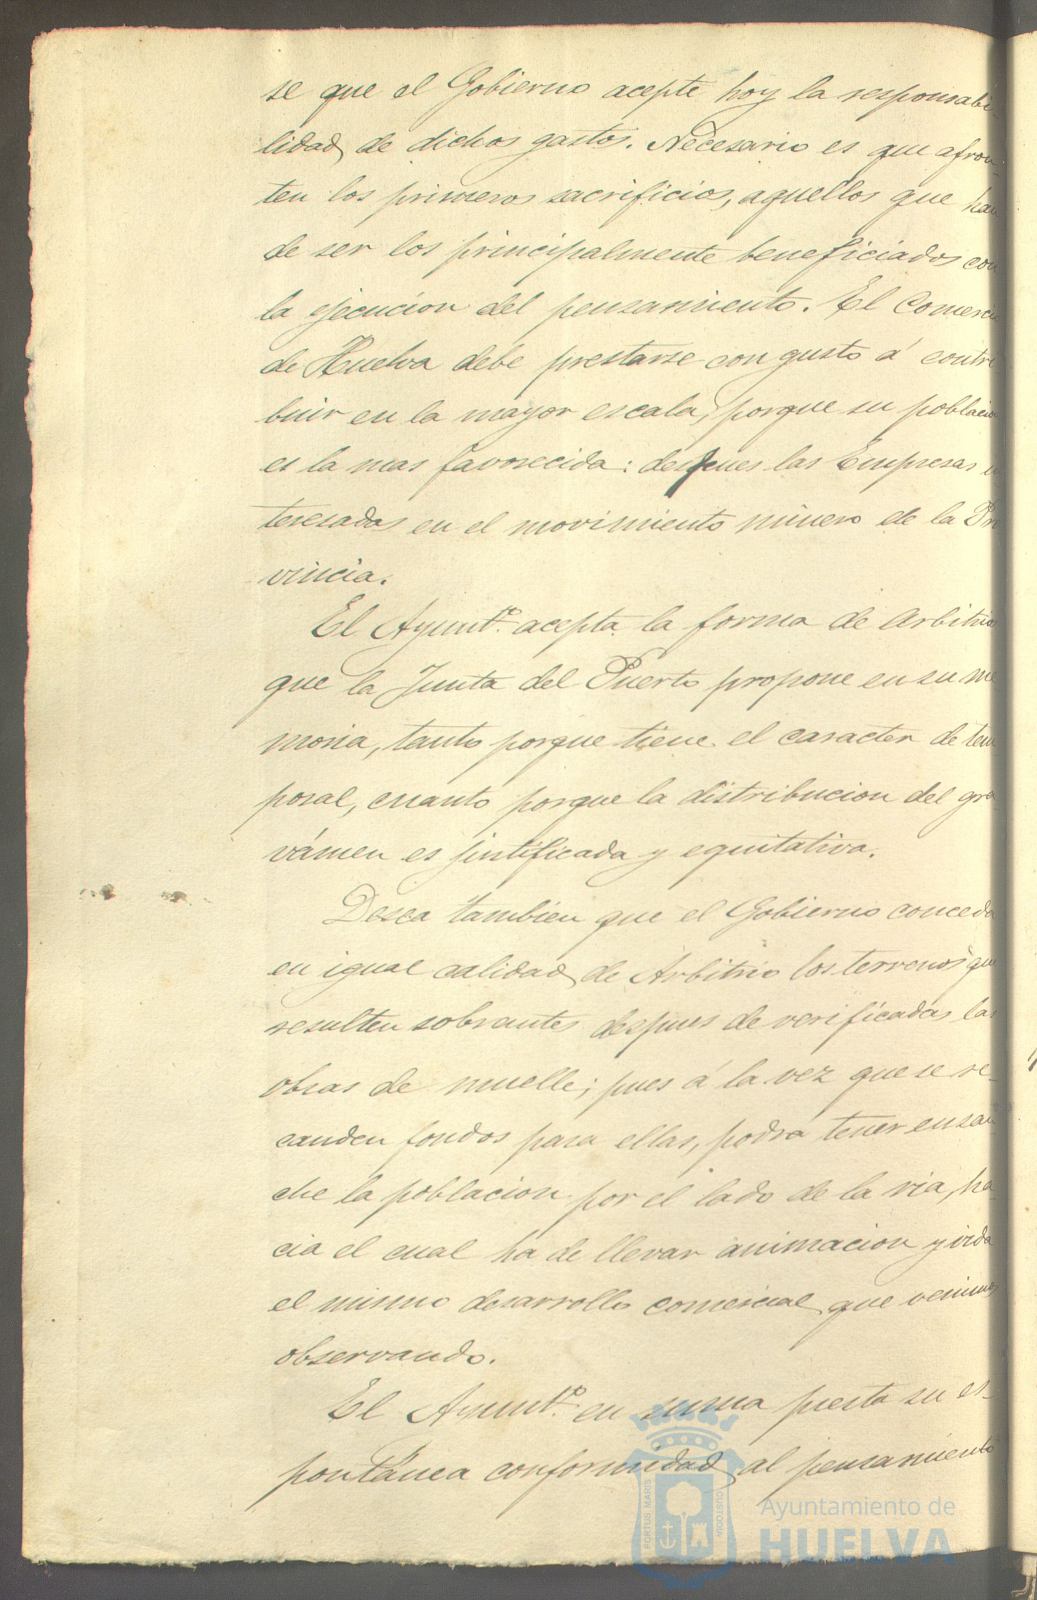 se que el Gobierno acepte hoy la responsabi-
lidad de dichos gastos. Necesario es que afron-
ten los primeros sacrificios, aquellos que han
de ser los principalmente beneficiados con
la ejecucion del pensamiento. El Comercio
de Huelva debe prestarse con gusto á contri
buir en la mayor escala, porque su poblacion
es la mas favorecida: despues las Empresas in
teresadas en el movimiento minero de la Pro
vincia.
El Ayuntº. acepta la forma de Arbitrio
que la Junta del Puerto propone en su me
moria, tanto porque tiene el caracter de tem
poral, cuanto porque la distribucion del gra
vámen es justificada y equitativa.
Desea tambien que el Gobierno conceda
en igual calidad de Arbitrio los terrenos que
resulten sobrantes despues de verificadas las
obras de muelle; pues á la vez que se re-
cauden fondos para ellas, podra tener ensan
che la poblacion por el lado de la ria, ha
cia el cual ha de llevar animacion y vida
el mismo desarrollo comercial que venimos
observando.
El Ayuntº. en suma presta su es-
pontánea conformidad al pensamiento
PORTUS MARIS CUSTODIA
Ayuntamiento de
HUELVA